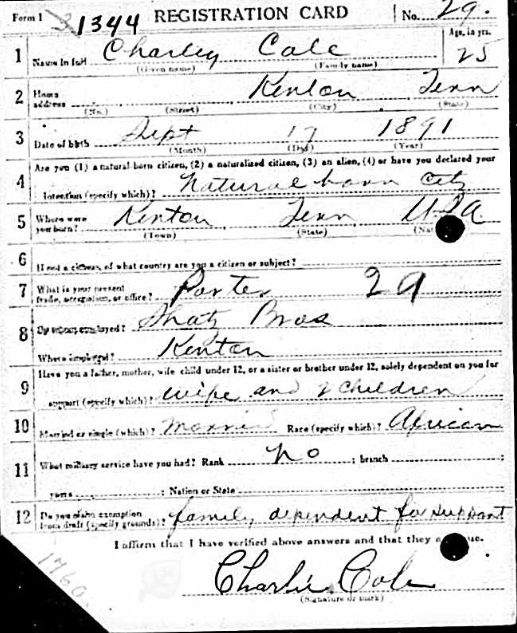 Form 1 31344 REGISTRATION CARD No. 29.
1 Name in full Charley Cole Age, in yrs. 25
(Given name) (Family name)
2 Home address Kenton Tenn
(No.) (Street) (City) (State)
3 Date of birth Sept 17 1891
(Month) (Day) (Year)
Are you (1) a natural-born citizen, (2) a naturalized citizen, (3) an alien, (4) or have you declared your
4 intention (specify which)? Natural born citz
5 Where were you born? Kenton Tenn U.S.A
(Town) (State) (Nat
6 If not a citizen, of what country are you a citizen or subject?
7 What is your present trade, occupation, or office? Porter 29
8 By whom employed? Bros
Where employed? Kenton
9 Have you a father, mother, wife child under 12, or a sister or brother under 12, solely dependent on you for
support (specify which)? wife and 2 children
10 Married or single (which)? Married Race (specify which)? African
11 What military service have you had? Rank no ; branch
years ; Nation or State
12 Do you claim exemption from draft (specify grounds)? family dependent for support
I affirm that I have verified above answers and that they a ue.
Charlie Cole
(Signature or mark)
1760